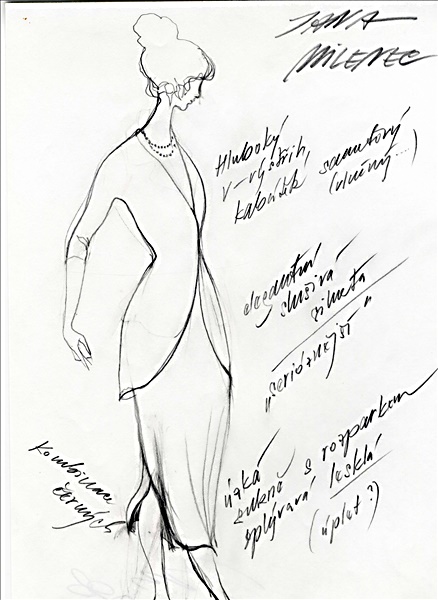 JANA
MILENEC
Hluboký
v-výstřih,
kabátek sametový
(vlněný...)
elegantní
slušivá
silueta
"serióznější"
úzká
sukně s rozparkem
splývavá lesklá
(úplet?)
Kombinace
černých